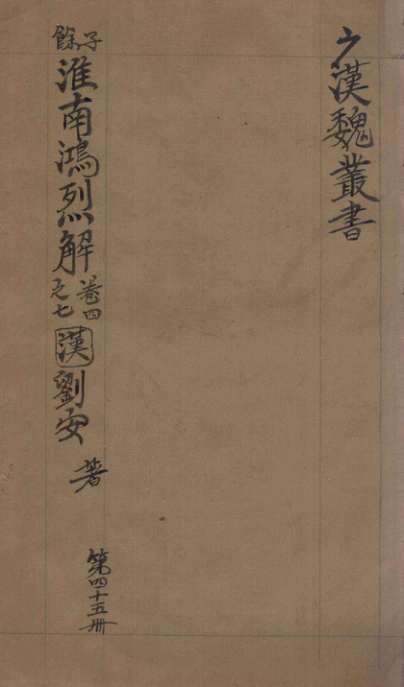 漢魏叢書
子餘
淮南鴻烈解
卷四之七
漢劉安
著
第四十五冊